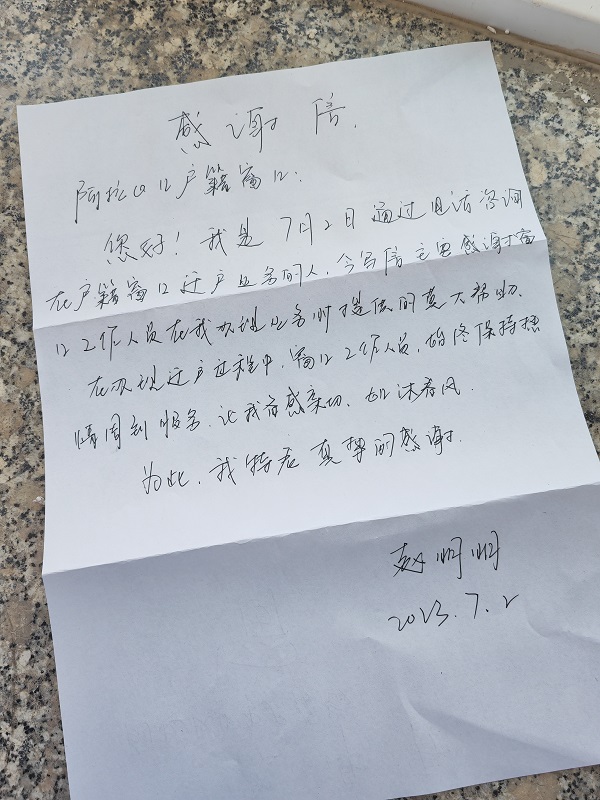 感谢信.
阿拉山口户籍窗口:
您好!我是7月2日通过电话咨询
在户籍窗口迁户业务的人,今写信主要感谢窗
口工作人员在我办理业务时提供的莫大帮助、
在办理迁户过程中,窗口工作人员,始终保持热
情周到服务,让我倍感亲切、如沐春风.
为此,我特表真挚的感谢.
赵明明
2023.7.2